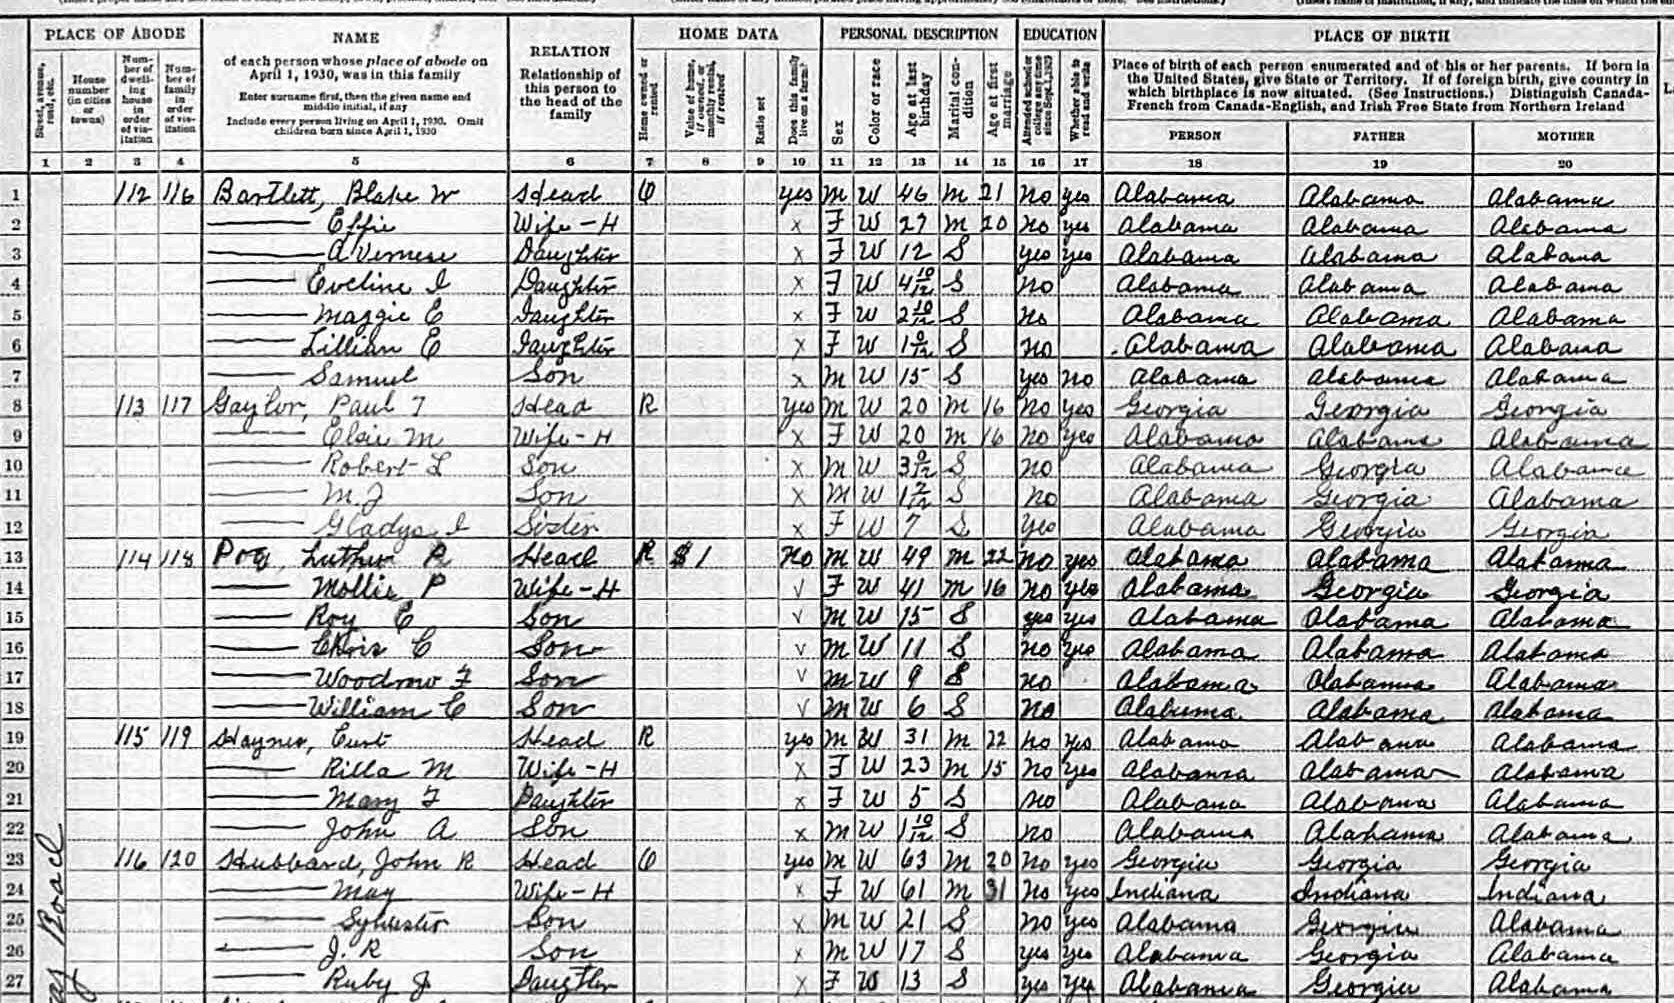 PLACE OF ABODE NAME RELATION HOME DATA PERSONAL DESCRIPTION EDUCATION PLACE OF BIRTH
Street, avenue, road, etc.
House number (in cities or towns)
Number of dwelling house in order of visitation
Number of family in order of visitation
of each person whose place of abode on
April 1, 1930, was in this family
Enter surname first, then the given name and
middle initial, if any
Include every person living on April 1, 1930. Omit
children born since April 1, 1930
Relationship of
this person to
the head of the
family
Home owned or rented
Value of home, if owned, or monthly rental, if rented
Radio set
Does this family live on a farm?
Sex
Color or race
Age at last birthday
Marital condition
Age at first marriage
Attended school or college any time since Sept. 1, 1929
Whether able to read and write
Place of birth of each person enumerated and of his or her parents. If born in
the United States, give State or Territory. If of foreign birth, give country in
which birthplace is now situated. (See Instructions.) Distinguish Canada-
French from Canada-English, and Irish Free State from Northern Ireland
PERSON FATHER MOTHER
1 2 3 4 5 6 7 8 9 10 11 12 13 14 15 16 17 18 19 20
1 112 116 Bartlett, Blake W Head O yes M W 46 M 21 no yes Alabama Alabama Alabama
2 Effie Wife-H x F W 27 M 20 no yes Alabama Alabama Alabama
3 A Vernese Daughter x F W 12 S yes yes Alabama Alabama Alabama
4 Eveline I Daughter x F W 4 10/12 S no Alabama Alabama Alabama
5 Maggie E Daughter x F W 2 10/12 S no Alabama Alabama Alabama
6 Lillian E Daughter x F W 1 0/12 S no Alabama Alabama Alabama
7 Samuel Son x M W 15 S yes no Alabama Alabama Alabama
8 113 117 Gaylor, Paul T Head R yes M W 20 M 16 no yes Georgia Georgia Georgia
9 Elsie M Wife-H x F W 20 M 16 no yes Alabama Alabama Alabama
10 Robert L Son x M W 3 0/12 S no Alabama Georgia Alabama
11 M J Son x M W 1 2/12 S no Alabama Georgia Alabama
12 Gladys I Sister x F W 7 S yes Alabama Georgia Georgia
13 114 118 Poe, Luther R Head R $1 no M W 49 M 22 no yes Alabama Alabama Alabama
14 Mollie P Wife-H v F W 41 M 16 no yes Alabama Georgia Georgia
15 Roy E Son v M W 15 S yes yes Alabama Alabama Alabama
16 Chris C Son v M W 11 S no yes Alabama Alabama Alabama
17 Woodrow F Son v M W 9 S no Alabama Alabama Alabama
18 William C Son v M W 6 S no Alabama Alabama Alabama
19 115 119 Haynes, Curt Head R yes M W 31 M 22 no yes Alabama Alabama Alabama
20 Rilla M Wife-H x F W 23 M 15 no yes Alabama Alabama Alabama
21 Mary F Daughter x F W 5 S no Alabama Alabama Alabama
22 John A Son x M W 1 10/12 S no Alabama Alabama Alabama
23 116 120 Hubbard, John R Head O yes M W 63 M 20 no yes Georgia Georgia Georgia
24 May Wife-H x F W 61 M 31 no yes Indiana Indiana Indiana
25 Sylvester Son x M W 21 S no yes Alabama Georgia Alabama
26 J. R Son x M W 17 S yes yes Alabama Georgia Alabama
27 Ruby J Daughter x F W 13 S yes yes Alabama Georgia Alabama
Road